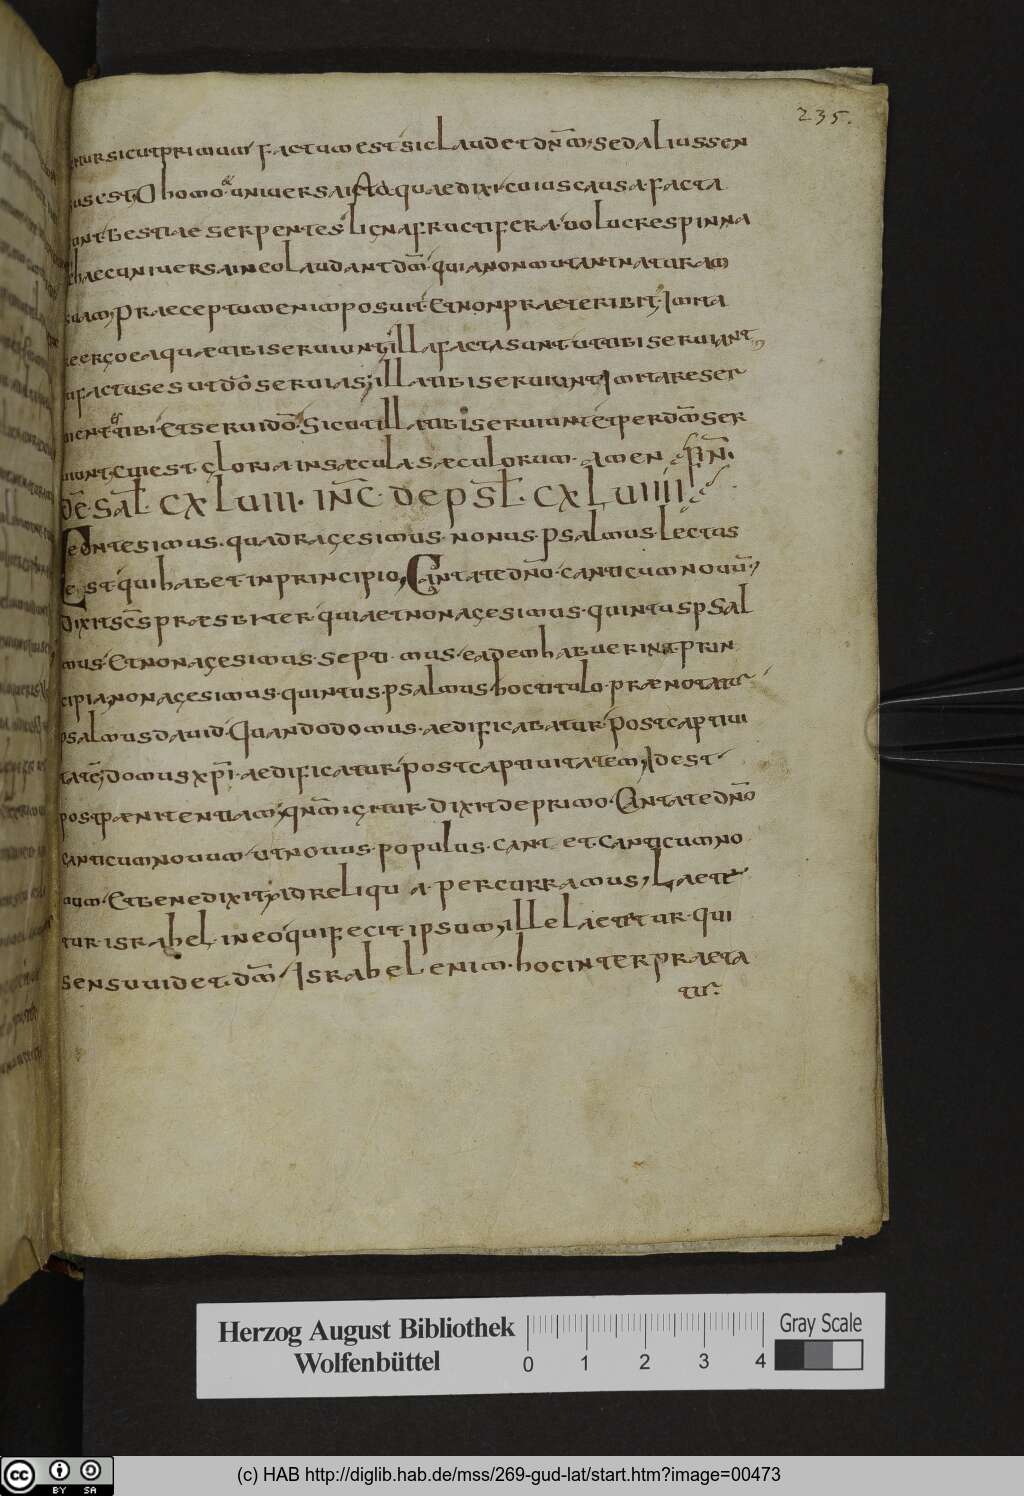 235.
tur sicut primum factum est sic laudet dnm sed alius sen
sus est O homo et universa ista quae dixi cuius causa facta
sunt bestiae serpentes ligna fructifera volucres pinna
haec universa in eo laudant dm quia non mutant naturam
suam praeceptum enim posuit et non praeteribit Imita
ergo ea quae tibi serviunt illa facta sunt ut tibi serviant
tu factus es ut do servias illa tibi serviunt Imitare ser
vient et tibi et servi do Sicut illa tibi serviunt et per dm ser
viunt cui est gloria in saecula saeculorum amen fin
de sal CXLVIII. INC DE PSL. CXLVIIII
Centesimus quadragesimus nonus psalmus lectus
est qui habet in principio Cantate dno canticum novum
dixit scs praesbiter quia et nonagesimus quintus psal
mus Et nonagesimus septi mus eadem habuerint prin
cipia nonagesimus quintus psalmus hoc titulo praenotatur
psalmus david Quando domus aedificabatur post captivi
tate domus xpi aedificatur post captivitatem Id est
post paenitentiam qnm igitur dixit de primo Cantate dno
canticum novum ut novus populus cant et canticum no
vum Et benedixit ad reliqu a percurramus Laete
tur israhel in eo qui fecit ipsum ille laetetur qui
sensu videt dm Israhel enim hoc interpraeta
tur
Herzog August Bibliothek
Wolfenbüttel
0 1 2 3 4
Gray Scale
cc BY SA
(c) HAB http://diglib.hab.de/mss/269-gud-lat/start.htm?image=00473